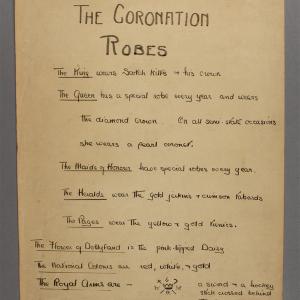 THE CORONATION
ROBES
The King wears Scotch kilts & his crown
The Queen has a special robe every year and wears
the diamond crown. On all semi-state occasions
she wears a pearl coronet.
The Maids of Honour have special robes every year.
The Heralds wear the gold jerkins & crimson tabards
The Pages wear the yellow & gold tunics.
The Flower of Dollyland is the pink-tipped Daisy
The National Colours are red, white, & gold
The Royal Arms are - a sword & a hockey
stick crossed behind